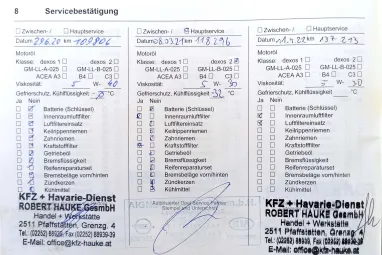 8 Servicebestätigung
Zwischen- / Hauptservice
Datum 29.6.20 km 109804
Motoröl
Klasse: dexos 1 dexos 2
GM-LL-A-025 GM-LL-B-025
ACEA A3 B4 C3
Viskosität: 5 W- 40
Gefrierschutz, Kühlflüssigkeit °C
Ja Nein
Batterie (Schlüssel)
Innenraumluftfilter
Luftfiltereinsatz
Keilrippenriemen
Zahnriemen
Kraftstofffilter
Getriebeöl
Bremsflüssigkeit
Reifenreparaturset
Bremsbeläge vorn/hinten
Zündkerzen
Kühlmittel
KFZ + Havarie-Dienst
ROBERT HAUKE GesmbH
Handel + Werkstätte
2511 Pfaffstätten, Grenzg. 4
E-Mail: office@kfz-hauke.at
Zwischen- / Hauptservice
Datum 08.0321 km 118296
Motoröl
Klasse: dexos 1 dexos 2
GM-LL-A-025 GM-LL-B-025
ACEA A3 B4 C3
Viskosität: 5 W- 30
Gefrierschutz, Kühlflüssigkeit -32 °C
Ja Nein
Batterie (Schlüssel)
Innenraumluftfilter
Luftfiltereinsatz
Keilrippenriemen
Zahnriemen
Kraftstofffilter
Getriebeöl
Bremsflüssigkeit
Reifenreparaturset
Bremsbeläge vorn/hinten
Zündkerzen
Kühlmittel
Zwischen- / Hauptservice
Datum 1.4.22 km 137 213
Motoröl
Klasse: dexos 1 dexos 2
GM-LL-A-025 GM-LL-B-025
ACEA A3 B4 C3
Viskosität: 5 W- 30
Gefrierschutz, Kühlflüssigkeit °C
Ja Nein
Batterie (Schlüssel)
Innenraumluftfilter
Luftfiltereinsatz
Keilrippenriemen
Zahnriemen
Kraftstofffilter
Getriebeöl
Bremsflüssigkeit
Reifenreparaturset
Bremsbeläge vorn/hinten
Zündkerzen
Kühlmittel
KFZ + Havarie-Dienst
ROBERT HAUKE GesmbH
Handel + Werkstätte
2511 Pfaffstätten, Grenzg. 4
E-Mail: office@kfz-hauke.at